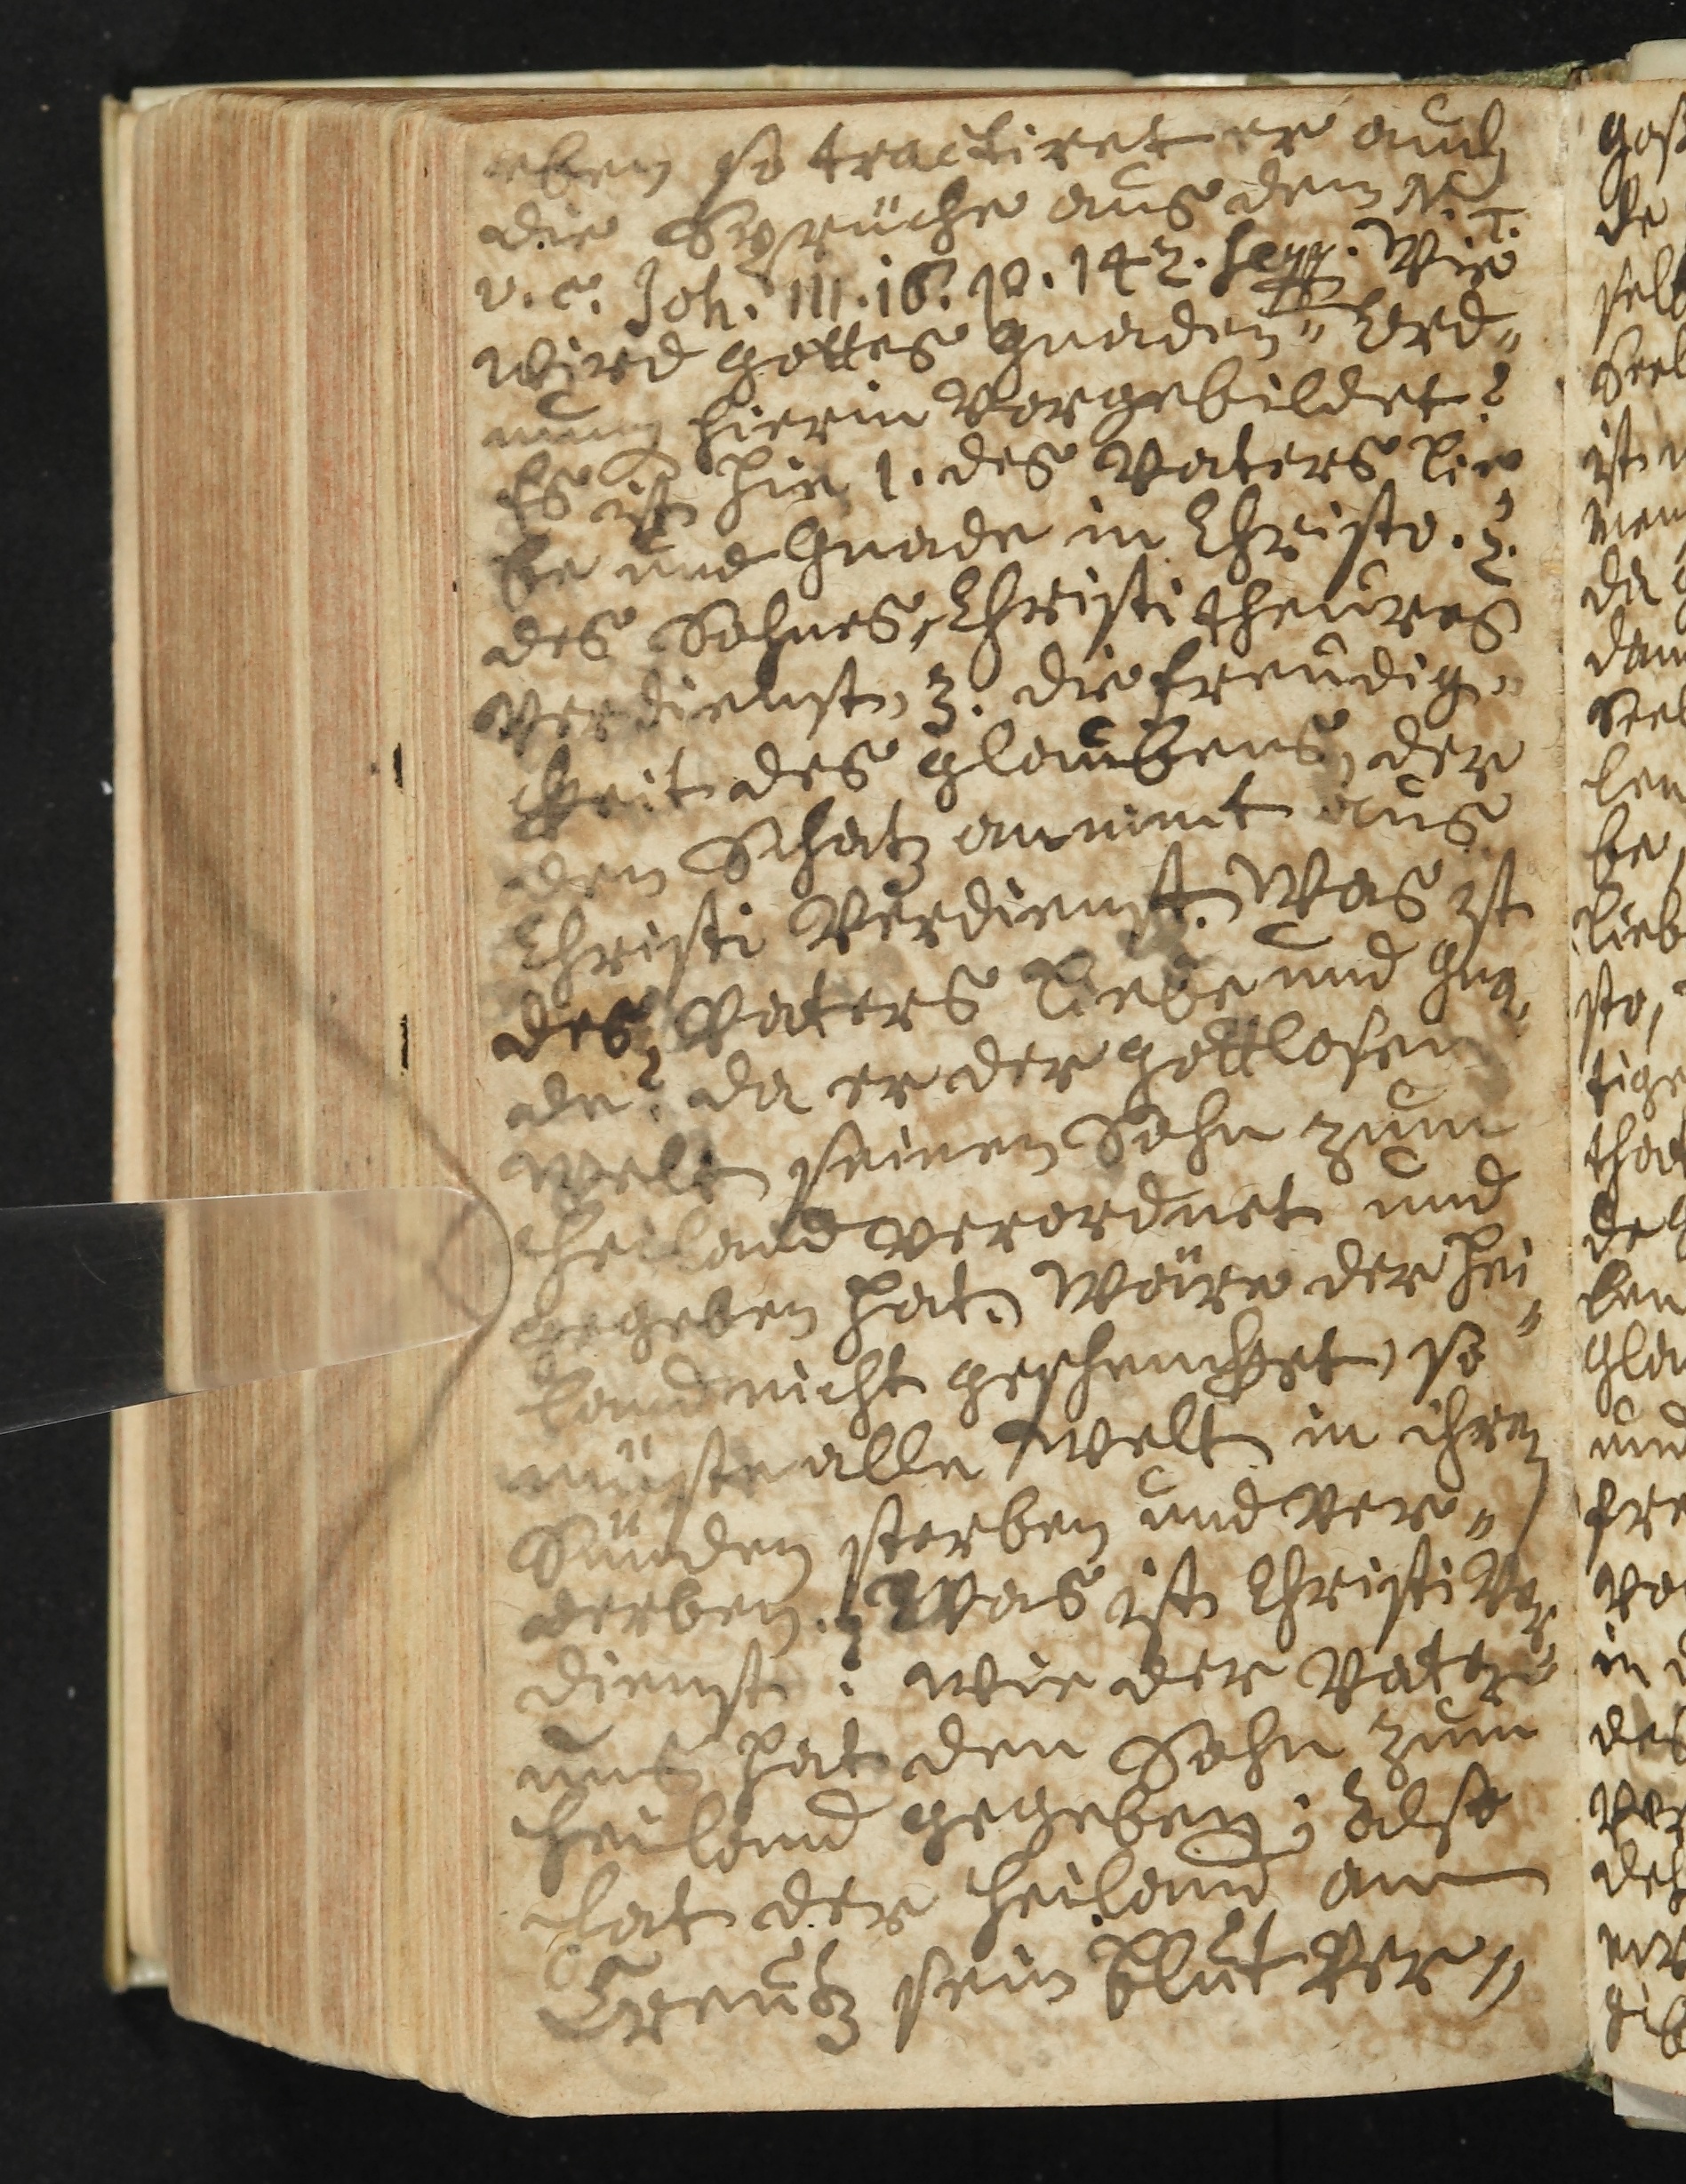 eben so tractiret er auch
die Sprüche aus dem N. T.
v. c. Joh. III. 16. p. 142. seqq. Wie
wird gottes gnaden- Ord-
nung hierin vorgebildet?
Es ist hie 1. des Vaters Lie
be und Gnade in Christo. 2.
des Sohnes, Christi theures
Verdienst, 3. die freudig-
keit des glaubens, der
den Schatz annimt aus
Christi Verdienst. Was ist
des Vaters Liebe und Gna-
de? da er der gottlosen
welt seinen Sohn zum
Heiland verordnet und
gegeben hat. Wäre der Hei-
land nicht geschencket, so
müste alle welt in ihren
Sünden sterben und ver-
derben. Was ist Christi Ver
dienst? wie der Vater
uns hat den Sohn zum
Heiland gegeben; also
hat der Heiland am
Creutz sein Blut ver-